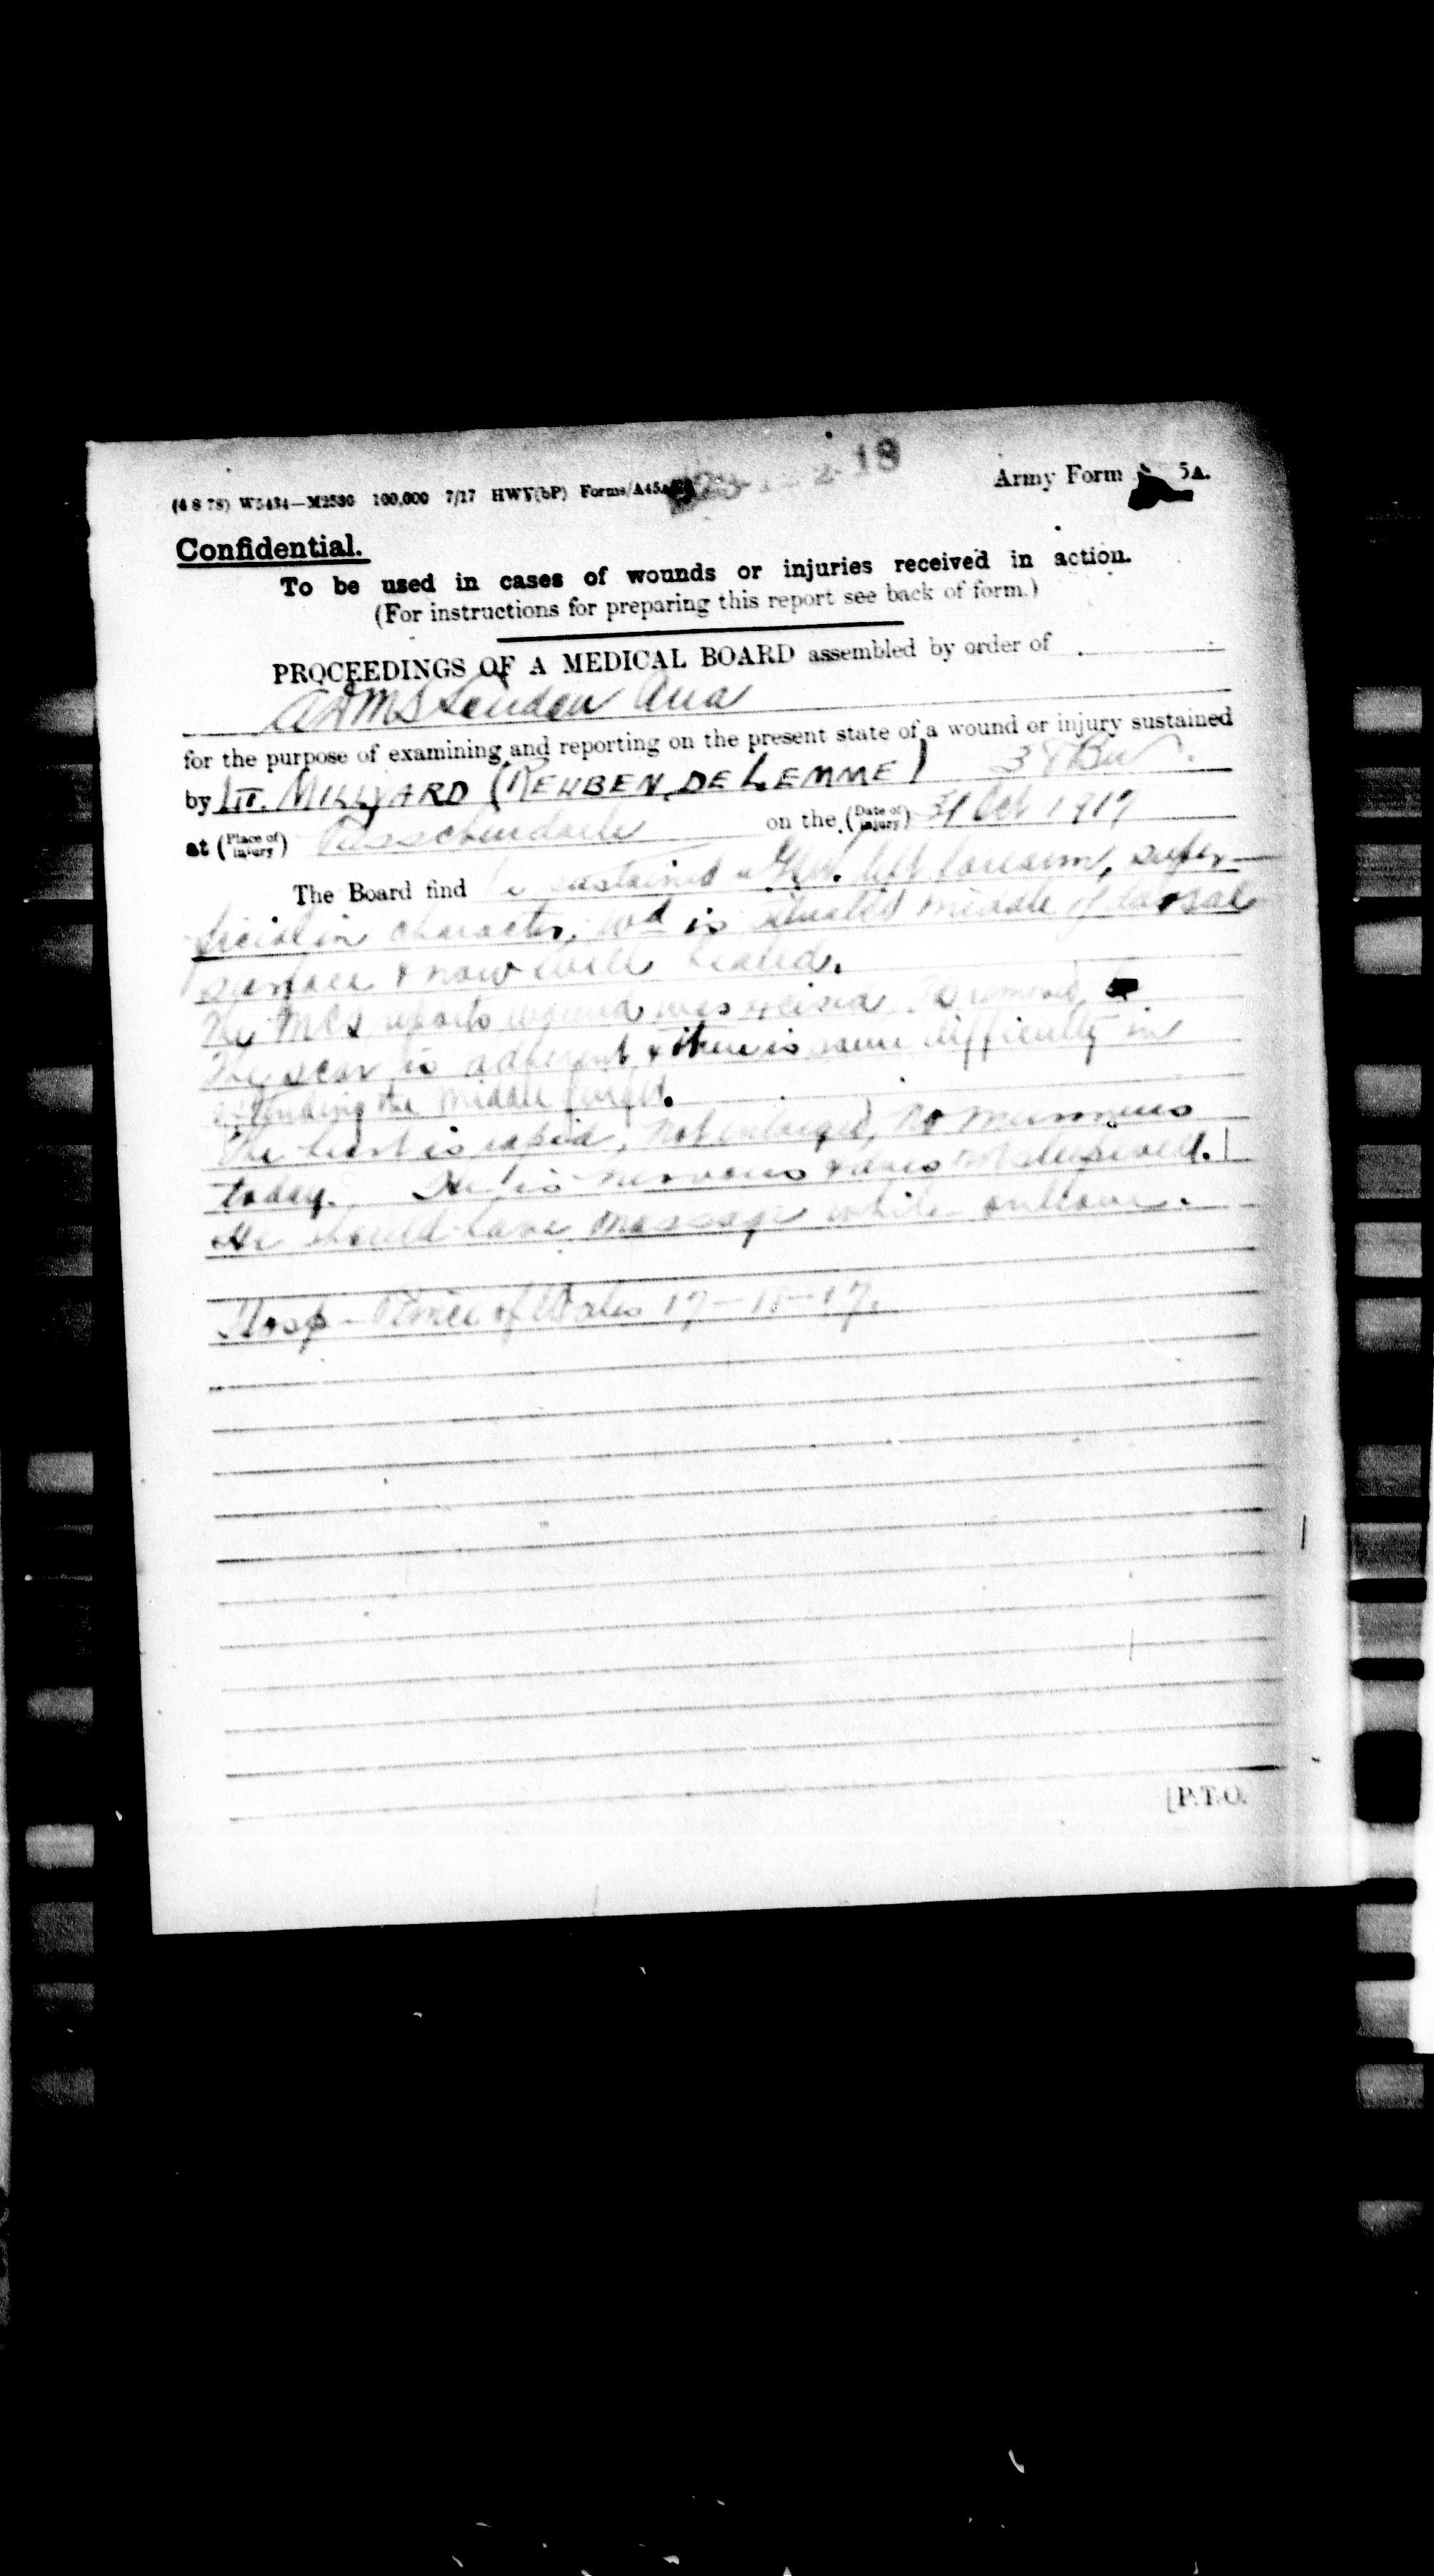 (4 8 78) W5434—M2530 100,000 7/17 HWV(bP) Forms/A45A
18
Army Form 5A.
Confidential.
To be used in cases of wounds or injuries received in action.
(For instructions for preparing this report see back of form.)
PROCEEDINGS OF A MEDICAL BOARD assembled by order of
ADMS London Area
for the purpose of examining and reporting on the present state of a wound or injury sustained
by LT. MILLYARD (REUBEN DE LEMME) 38 Bn
at (Place of Injury) Passchendaele on the (Date of Injury) 31 Oct 1917
The Board find he sustained a G.S.W. left forearm, super-
ficial in character, wd is situated middle of dorsal
surface & now well healed.
The MCS reports wound was excised removed
The scar is adherent & there is some difficulty in
extending the middle finger.
The heart is rapid, not enlarged, no murmurs
today. He is nervous & does not sleep well.
He should have massage while on leave.
Hosp - Prince of Wales 17- -17.
[P.T.O.